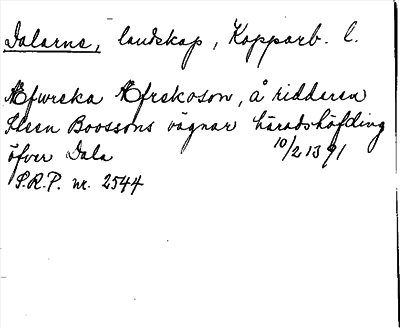 Dalarne, landskap, Kopparb. l.
Æfwreka Æfrekoson, å riddaren
Steen Boossons vägnar häradshöfding
öfver Dala 10/2 1391
S.R.P. nr. 2544